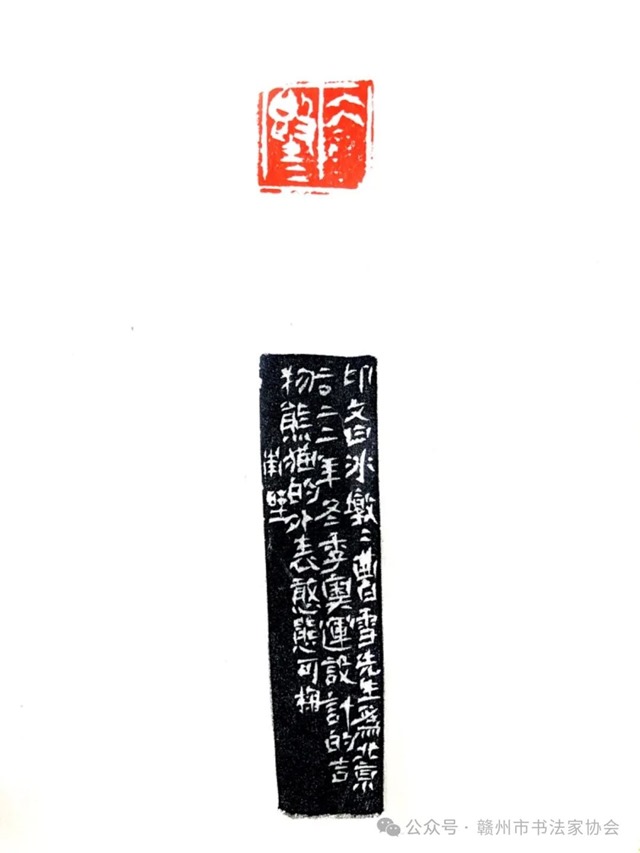 冰墩二
印文曰冰墩二曹雪先生為北京
二〇二二年冬季奧運設計的吉
物熊猫的外表憨態可掬
南
公众号·赣州市书法家协会